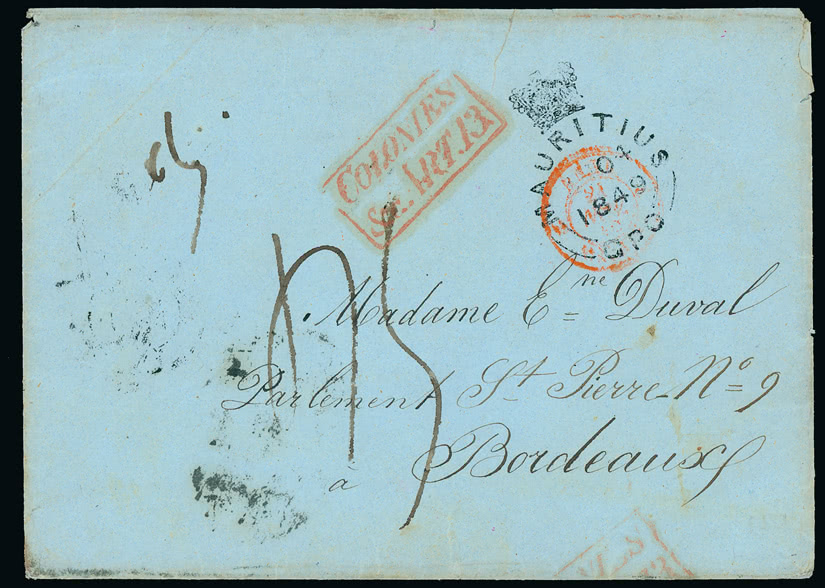 COLONIES
&c. ART. 13
MAURITIUS
1849
GPO
Madame E^ne Duval
Parlement S^t Pierre N^o 9
à Bordeaux